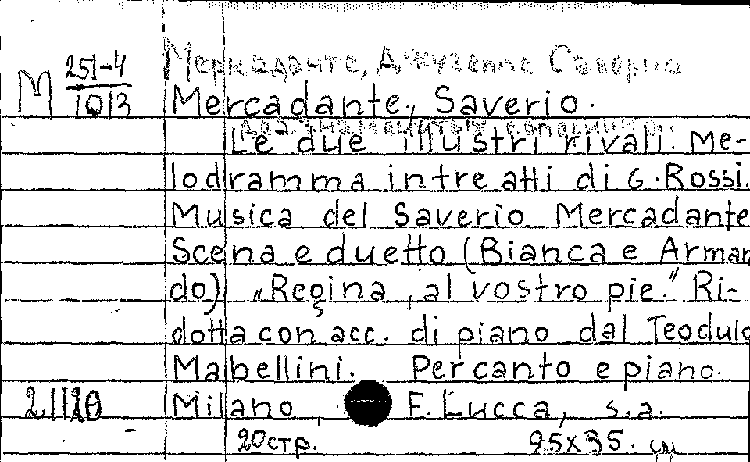 Меркаданте, Джузеппе Саверио
M 251-4
1013
Mercadante, Saverio.
Два знаменитых соперника.
Le due illustri rivali. Me-
lodramma in tre atti di G. Rossi.
Musica del Saverio Mercadante
Scena e duetto (Bianca e Arman
do) „Regina, al vostro pie." Ri-
dotta con acc. di piano dal Teodulo
Mabellini. Per canto e piano.
21120 Milano, F. Lucca, s.a.
20 стр. 25x35. см